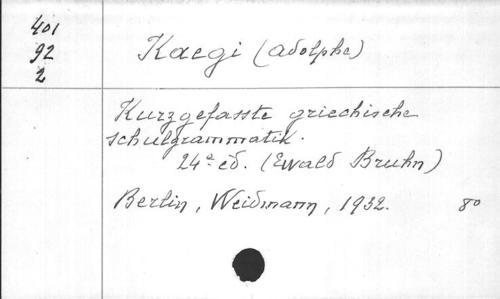 401
92
2
Kaegi (Adolphe)
Kurzgefasste griechische
schulgrammatik.
24ª ed. (Ewald Bruhn)
Berlin, Weidmann, 1932. 8º